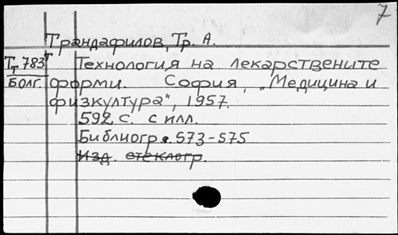 7
Трандафилов, Тр. А.
Тт 783 Т Технология на лекарствените
Болг. форми. София, „Медицина и
физкултура", 1957.
592 с. с илл.
Библиогр. с. 573-575
Изд. стеклогр.